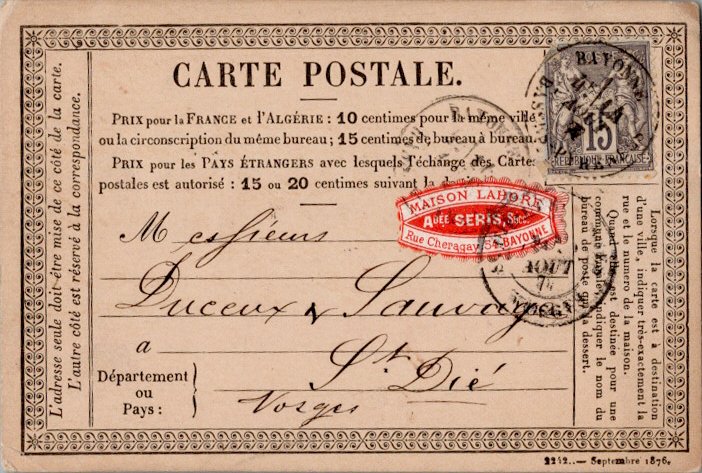 CARTE POSTALE.
PRIX pour la FRANCE et l'ALGÉRIE : 10 centimes pour la même ville
ou la circonscription du même bureau ; 15 centimes de bureau à bureau.
PRIX pour les PAYS ÉTRANGERS avec lesquels l'échange des Carte
postales est autorisé : 15 ou 20 centimes suivant la
L'adresse seule doit être mise de ce côté de la carte.
L'autre côté est réservé à la correspondance.
BAYONNE
15
REPUBLIQUE FRANÇAISE
MAISON LABORE
ADÉE SERIS, Succ.
Rue Cheragay 54 BAYONNE
AOUT
Messieurs
Duceux & Sauvage
a
St Dié
Département
ou
Pays :
Vosges
Lorsque la carte est à destination
d'une ville, indiquer très-exactement la
rue et le numero de la maison.
Quand elle est destinée pour une
commune indiquer le nom du
bureau de poste qui la dessert.
2212.. — Septembre 1876.